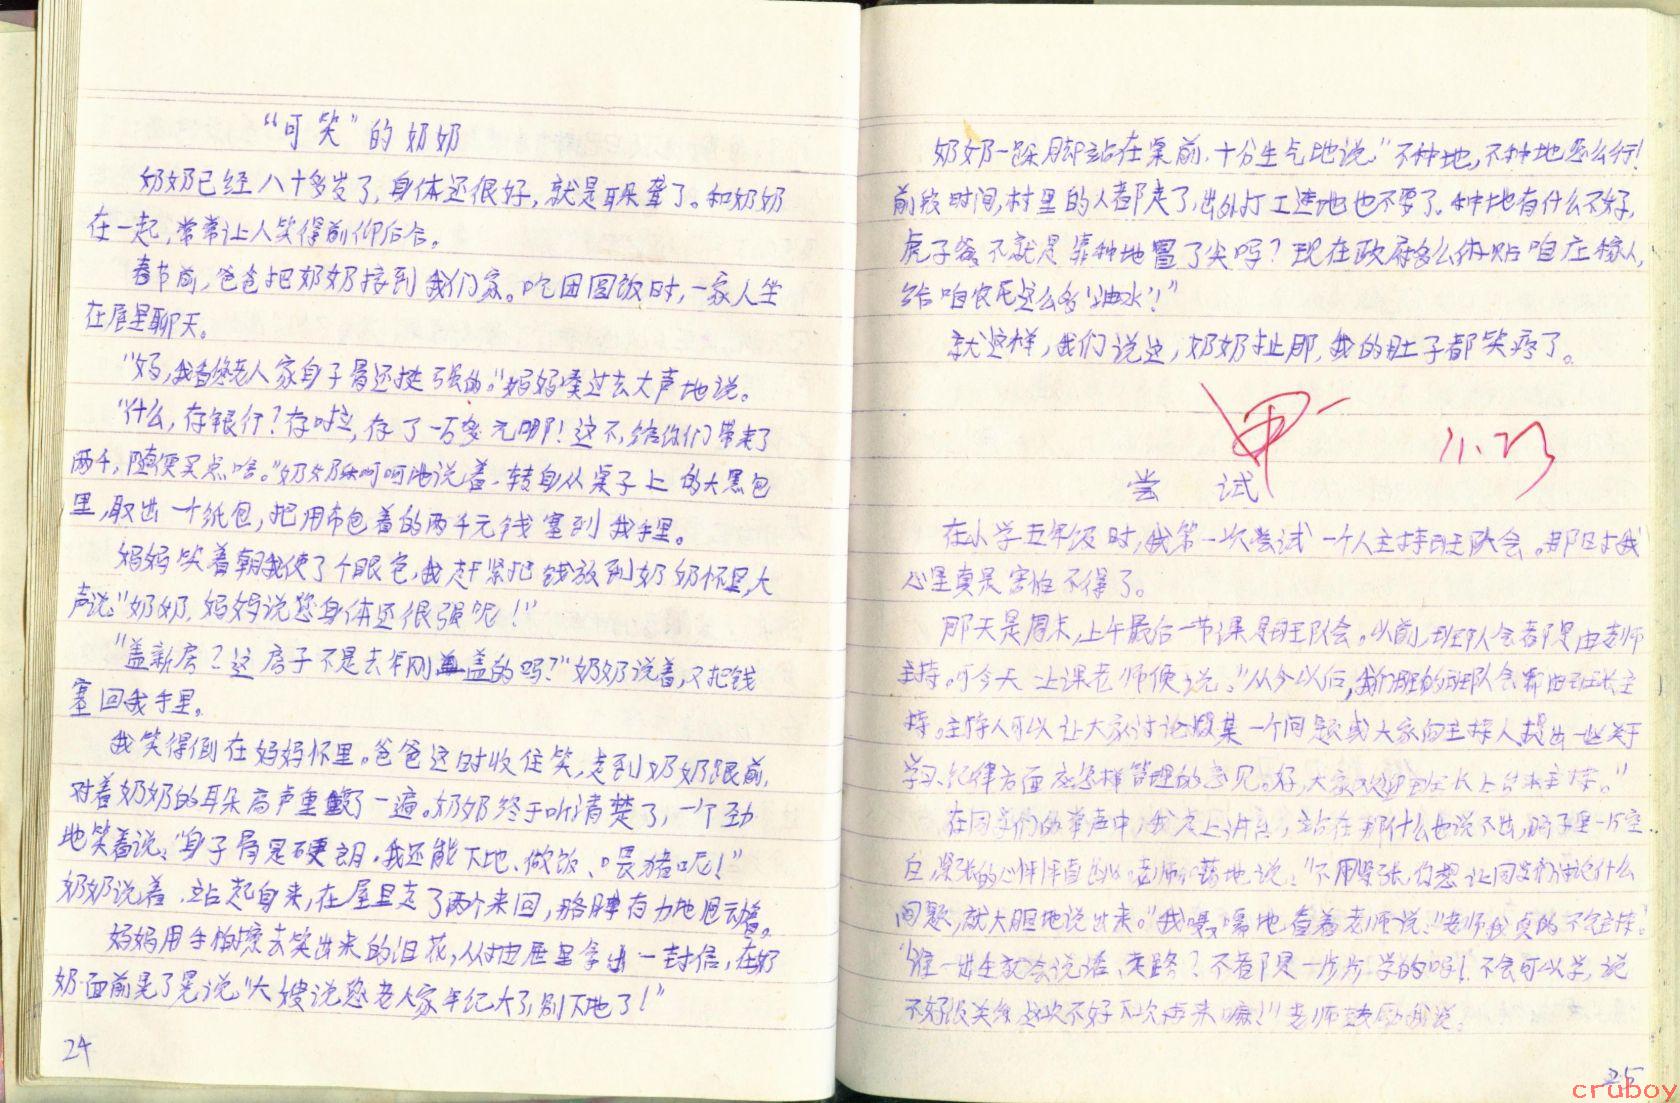 “可笑”的奶奶
奶奶已经八十多岁了,身体还很好,就是耳朵聋了。和奶奶
在一起,常常让人笑得前仰后合。
春节前,爸爸把奶奶接到我们家。吃团圆饭时,一家人坐
在屋里聊天。
“妈,我看您老人家身子骨还挺强的。”妈妈凑过去大声地说。
“什么,存银行?存啦,存了一百多元哪!这不,给你们带来了
两千,随便买点啥。”奶奶乐呵呵地说着,转身从桌子上的大黑包
里,取出一个纸包,把用布包着的两千元钱塞到我手里。
妈妈笑着朝我使了个眼色,我赶紧把钱放到奶奶怀里,大
声说:“奶奶,妈妈说您身体还很强呢!”
“盖新房?这房子不是去年刚盖的吗?”奶奶说着,又把钱
塞回我手里。
我笑得倒在妈妈怀里。爸爸这时收住笑,走到奶奶跟前,
对着奶奶的耳朵高声重复了一遍。奶奶终于听清楚了,一个劲
地笑着说:“身子骨是硬朗,我还能下地、做饭、喂猪呢!”
奶奶说着,站起身来,在屋里走了两个来回,胳膊有力地甩动着。
妈妈用手怕擦去笑出来的泪花,从抽屉里拿出一封信,在奶
奶面前晃了晃说“大嫂说您老人家年纪大了,别下地了!”
24
奶奶一跺脚站在桌前,十分生气地说:“不种地,不种地怎么行!
前段时间,村里的人都走了,出外打工连地也不要了。种地有什么不好,
虎子爸不就是靠种地冒了尖吗?现在政府多么体贴咱庄稼人,
给咱农民这么多‘油水’!”
就这样,我们说这,奶奶扯那,我的肚子都笑疼了。
甲 11.23
尝 试
在小学五年级时,我第一次尝试一个人主持班队会。那时我
心里真是害怕不得了。
那天是周末,上午最后一节课是班队会。以前,班队会都是由老师
主持。可今天上课老师便说:“从今以后,我们班的班队会都由班长主
持。主持人可以让大家讨论某一个问题或大家向主持人提出一些关于
学习、纪律方面应怎样管理的意见。好,大家欢迎班长上台来主持。”
在同学们的掌声中,我走上讲台,站在那什么也说不出,脑子里一片空
白,紧张的心怦怦直跳。老师和蔼地说:“不用紧张,你想让同学们讨论什么
问题,就大胆地说出来。”我嗫嚅地看着老师说:“老师我真的不会主持。”
“谁一出生就会说话、走路?不都是一步步学的吗!不会可以学,说
不好没关系,这次不好下次再来嘛!”老师鼓励我说。
25
cruboy